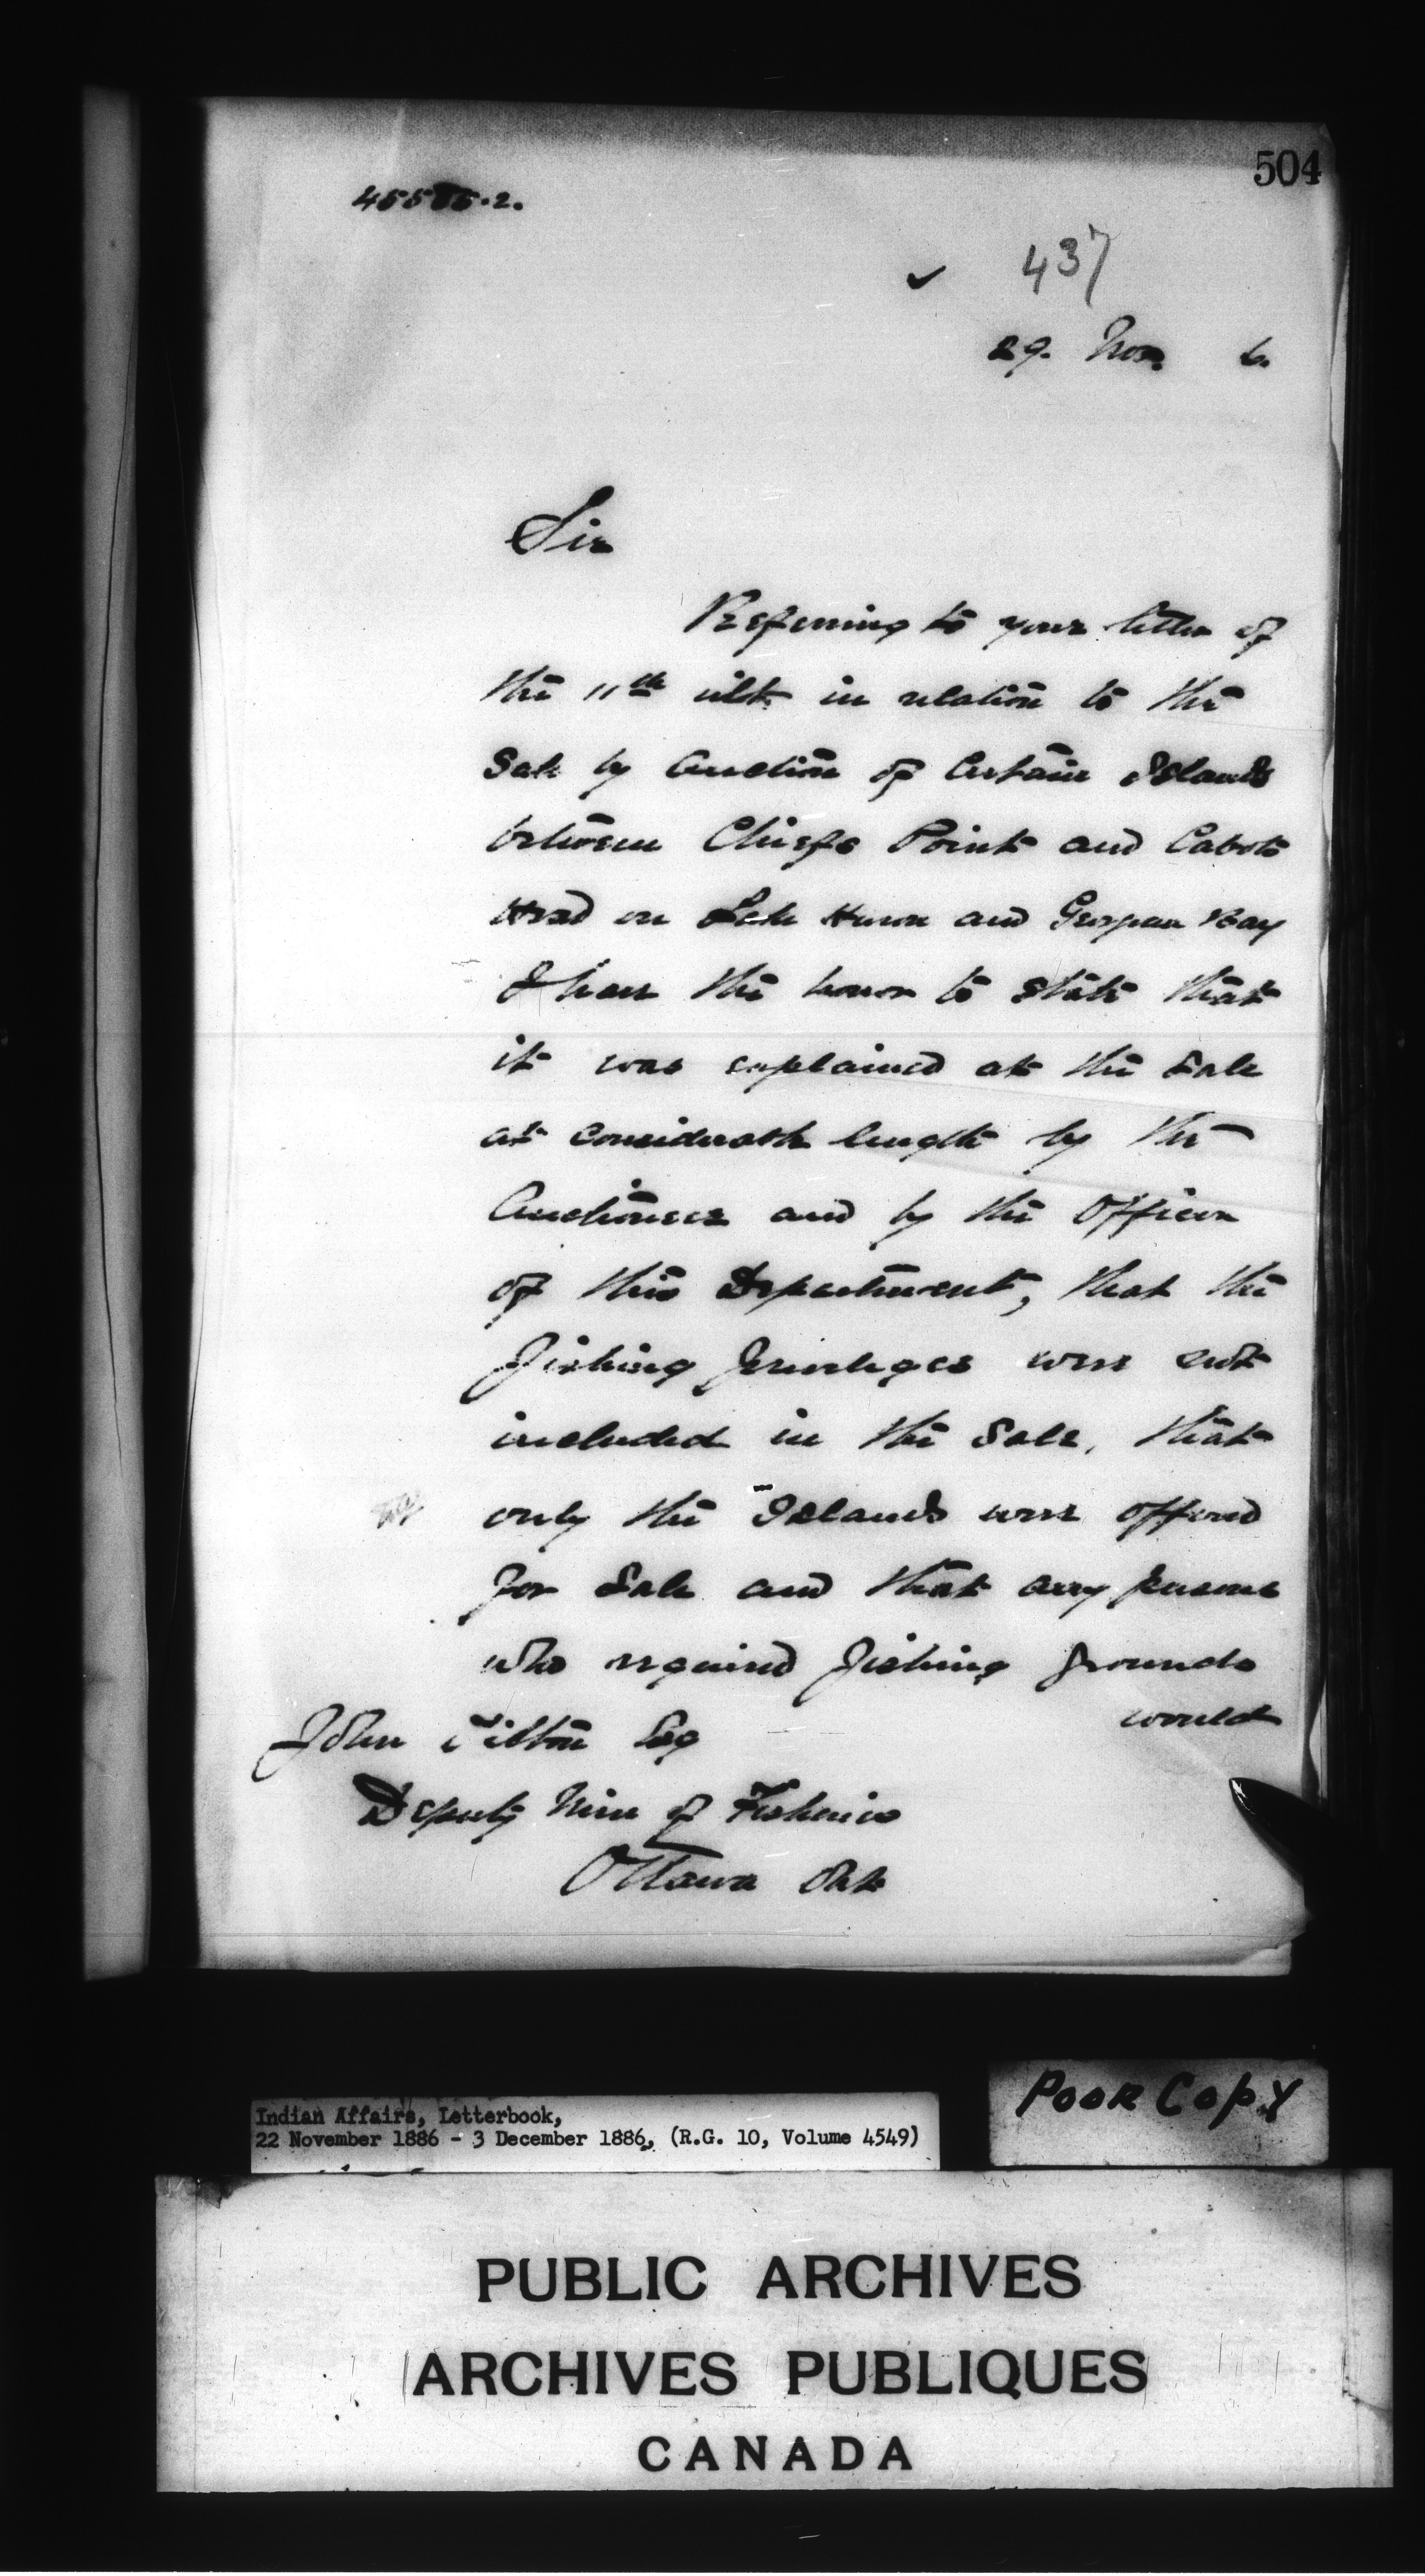 504
437
29. Nov. 6.
Sir
Referring to your letter of
the 11th ult. in relation to the
Sale by Auction of Certain Islands
between Chiefs Point and Cabots
Head on Lake Huron and Georgian Bay
I have the honor to state that
it was explained at the Sale
at considerable length by the
Auctioneer and by the Officer
of this Department, that the
fishing privileges were not
included in the Sale, that
only the Islands were offered
for Sale and that any persons
who required fishing grounds
would
John Tilton Esq
Deputy Min of Fisheries
Ottawa Ont
Indian Affairs, Letterbook,
22 November 1886 - 3 December 1886, (R.G. 10, Volume 4549)
POOR COPY
PUBLIC ARCHIVES
ARCHIVES PUBLIQUES
CANADA